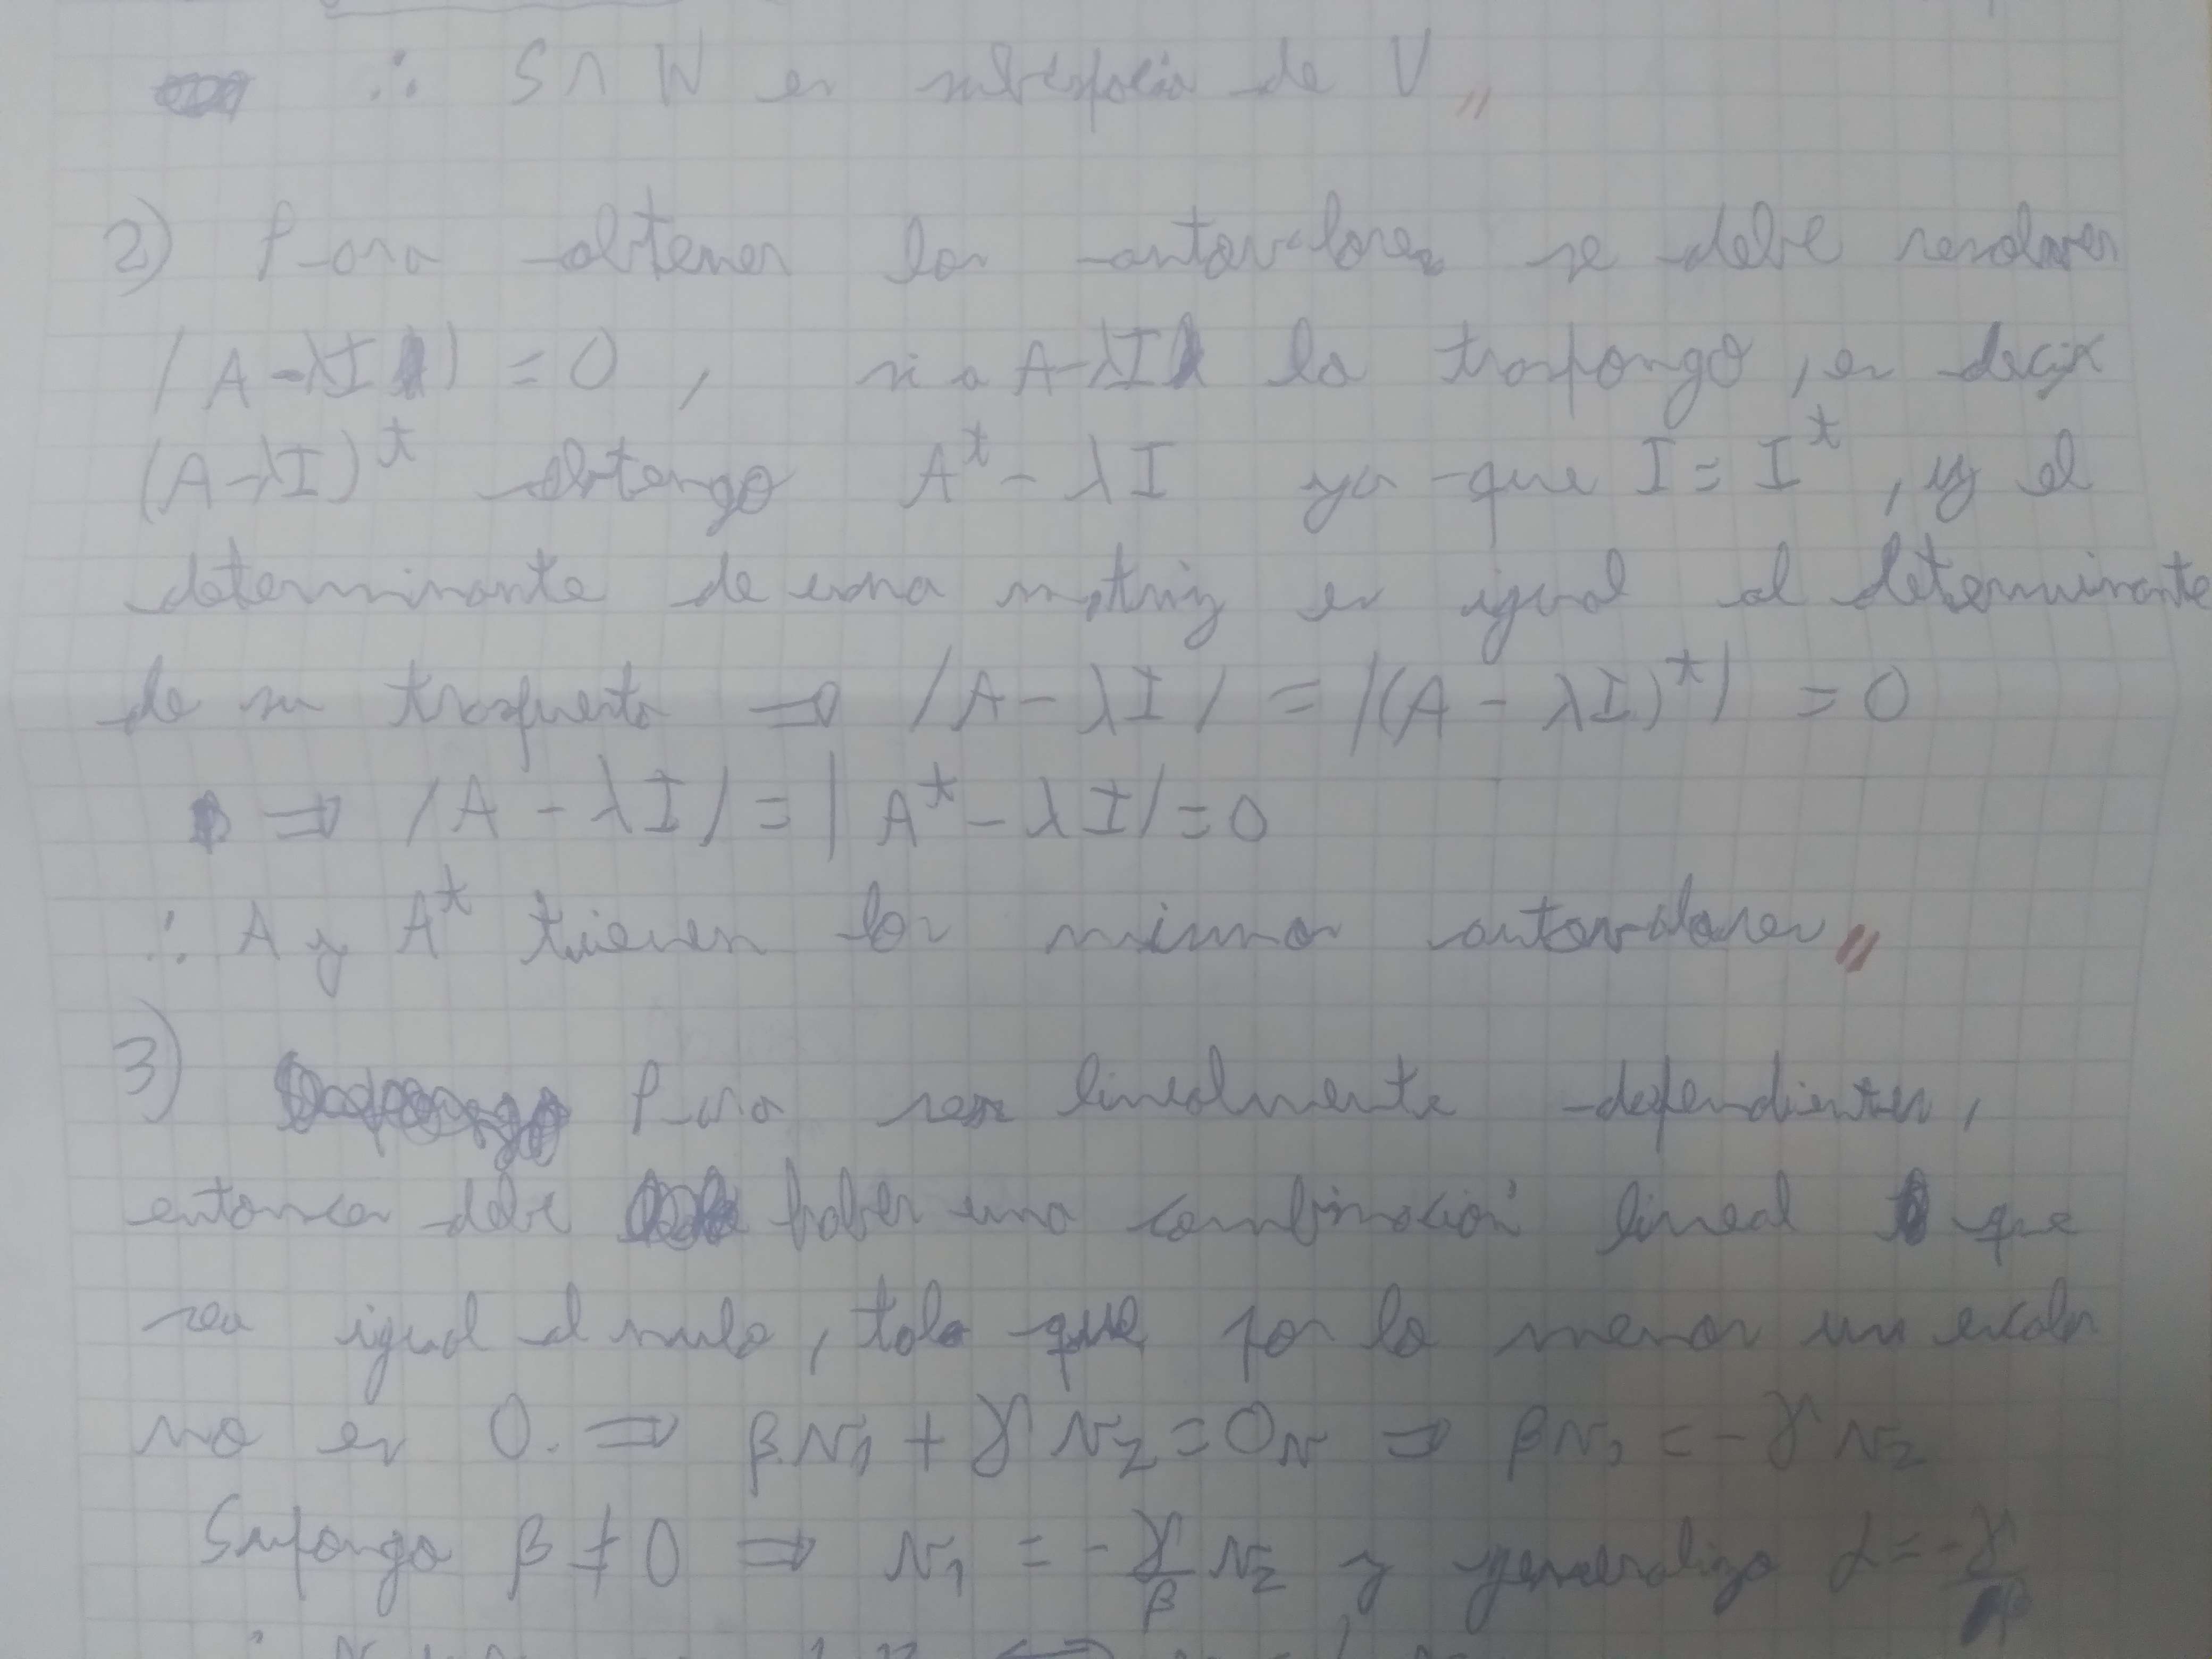 ∴ S∩W es subespacio de V
2) Para obtener los autovalores se debe resolver
|A-λI| = 0, si a A-λI la traspongo, es decir
(A-λI)^t obtengo A^t - λI ya que I = I^t, y el
determinante de una matriz es igual al determinante
de su traspuesta ⇒ |A - λI| = |(A - λI)^t| = 0
⇒ |A - λI| = |A^t - λI| = 0
∴ A y A^t tienen los mismos autovalores
3) Para ser linealmente dependientes,
entonces debe haber una combinación lineal que
sea igual al nulo, tal que por lo menos un escalar
no es 0. ⇒ βv₁ + γv₂ = 0v ⇒ βv₁ = -γv₂
Supongo β ≠ 0 ⇒ v₁ = -γ/β v₂ y generalizo α = -γ/β